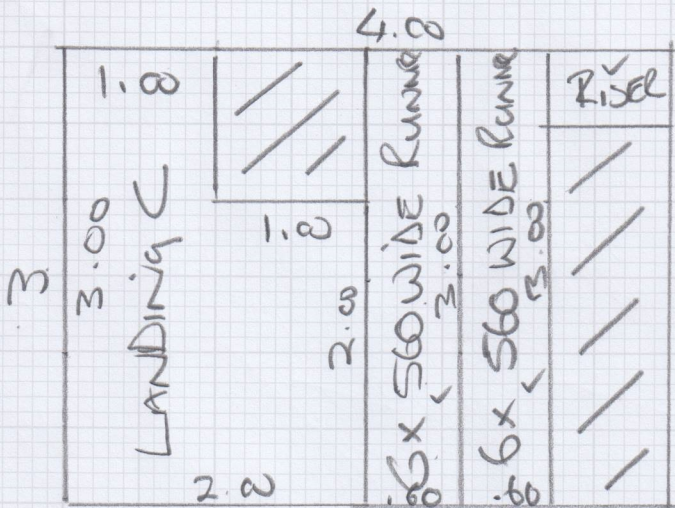 4.00
1.00
RISER
3
3.00
LANDING C
1.00
2.00
2.00
6 x 560 WIDE RUNNER
3.00
.60
6 x 560 WIDE RUNNER
3.00
.60